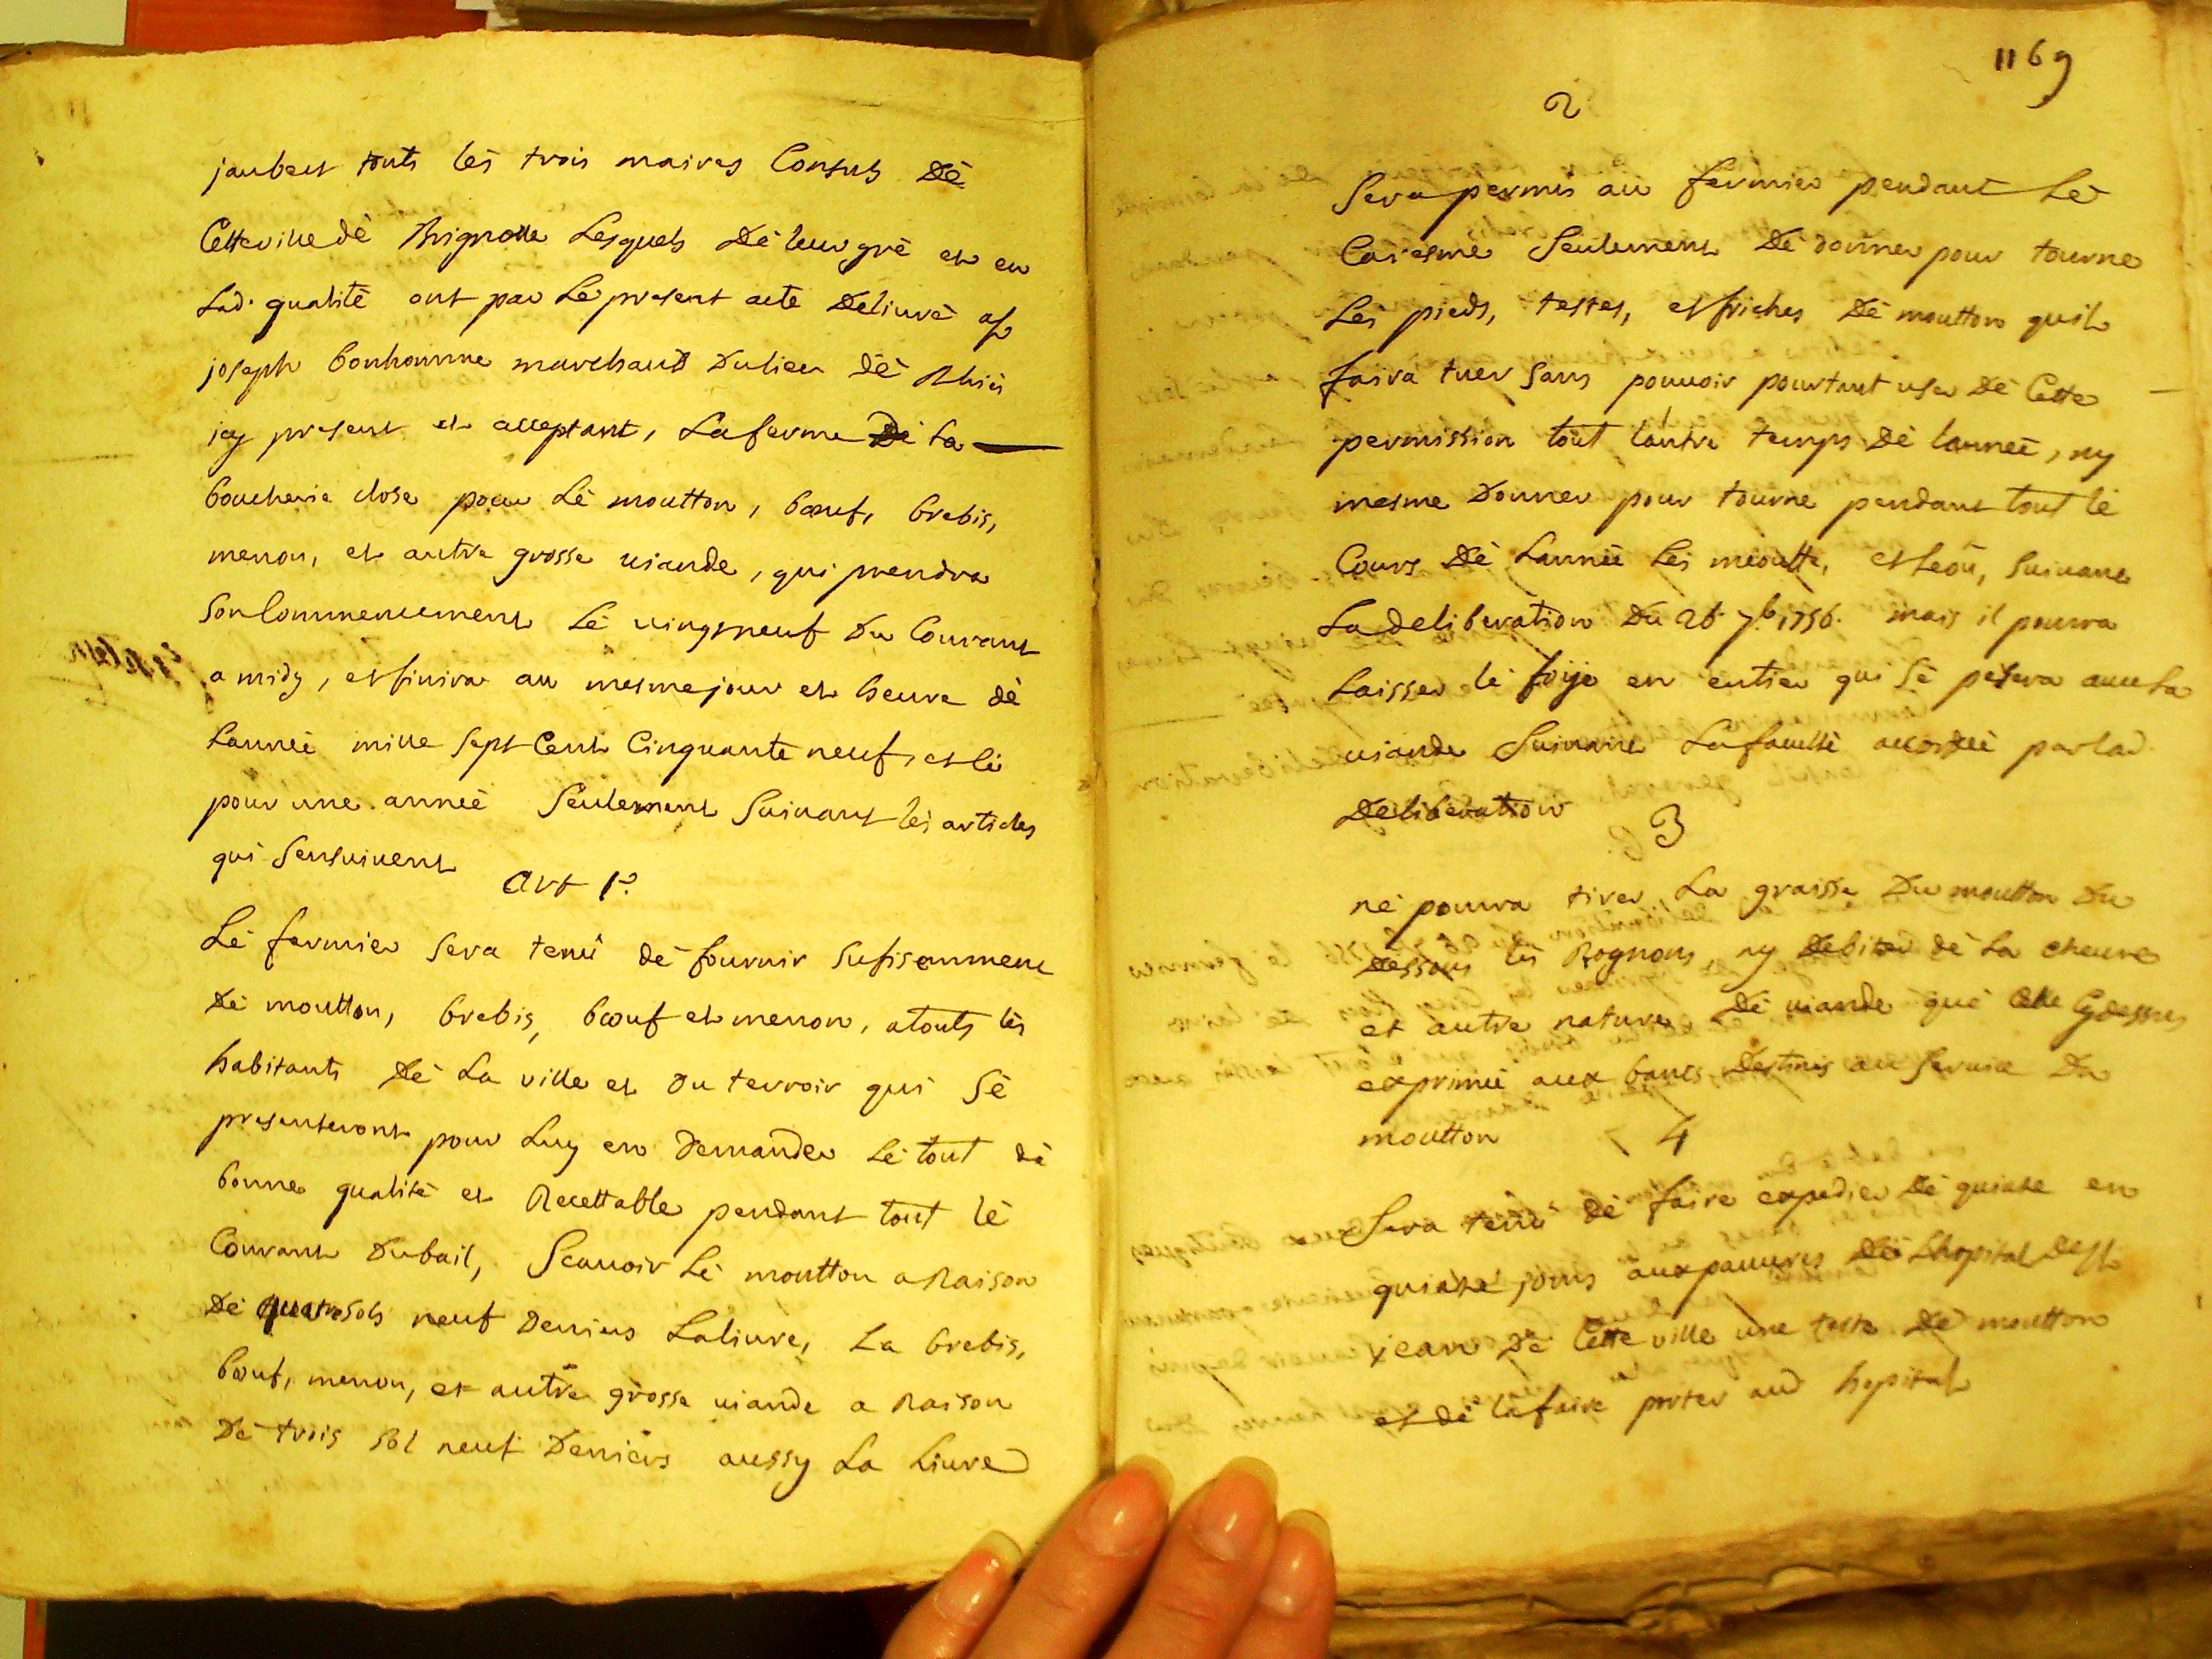 jaubert touts les trois maires Consuls Dè
Cetteville dè Brignolle Lesquels Dè leur grè et en
Lad. qualitè ont par Le present acte Deliurè a Sr
joseph bonhomme marchand Du lieu dè Rhiès
icy present et acceptant, La ferme Dè La
boucherie close pour Lè moutton, bœuf, brebis,
menon, et autre grosse uiande, qui prendra
Son Commencement Lè uingtneuf Du Courant
a midy, et finira au mesme jour et heure dè
Lanneè mille Sept Cent Cinquante neuf, et cè
pour une anneè Seulement Suiuant les articles
qui Sensuiuent
Art 1er
Lè fermier Sera tenù dè fournir Sufisemment
Dè moutton, brebis, bœuf et menon, a touts les
habitants Dè La ville et Du terroir qui Sè
presenteront pour Luy en Demander Lè tout dè
bonne qualitè et Recettable pendant tout lè
Courant Du bail, Scauoir Lè moutton a Raison
Dè quatre sols neuf Deniers La liure, La brebis,
bœuf, menon, et autre grosse uiande a Raison
Dè trois sol neuf Deniers aussy La Liure
1169
2
Sera permis au fermier pendant Lè
Caresme Seulement Dè donner pour tourne
Lès pieds, testes, et friches Dè moutton quil
faira tuer Sans pouuoir pourtant user Dè Cette
permission tout lautre temps Dè lanneè, ny
mesme Donner pour tourne pendant tout lè
Cours Dè Lanneè Les meoutte, et leou, Suiuant
La deliberation Du 26 7b. 1756. mais il pourra
Laisser lè foije en entier qui Sè pesera auec La
uiande Suiuant La facultè accordeè par lad.
Deliberation
3
nè pourra tirer La graisse Du moutton Du
Dessous les Rognons, ny Debiter dè La cheure
et autre nature Dè uiande què Celle Cydessus
exprimeè aux bancs Destinès au Seruice Du
moutton
4
Sera tenù dè faire expedier Dè quinze en
quinze jours aux pauures Dè Lhopital De St
jean Dè Cette ville une teste Dè moutton
et dè la faire porter aud hopital